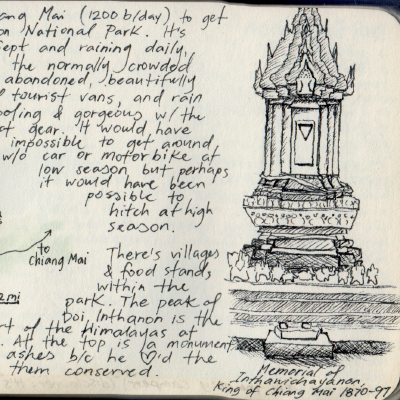 ang Mai (1200 b/day) to get
on National Park. It's
ept and raining daily,
the normally crowded
abandoned, beautifully
tourist vans, and rain
ooling & gorgeous w/ the
ot gear. It would have
impossible to get around
w/o car or motorbike at
low season, but perhaps
it would have been
possible to
hitch at high
season.
to
Chiang Mai
2 mi
There's villages
& food stands
within the
park. The peak of
Doi Inthanon is the
rt of the Himalayas at
. At the top is a monument
ashes b/c he ♡'d the
them conserved.
Memorial of
Inthawichayanon,
King of Chiang Mai 1870-97